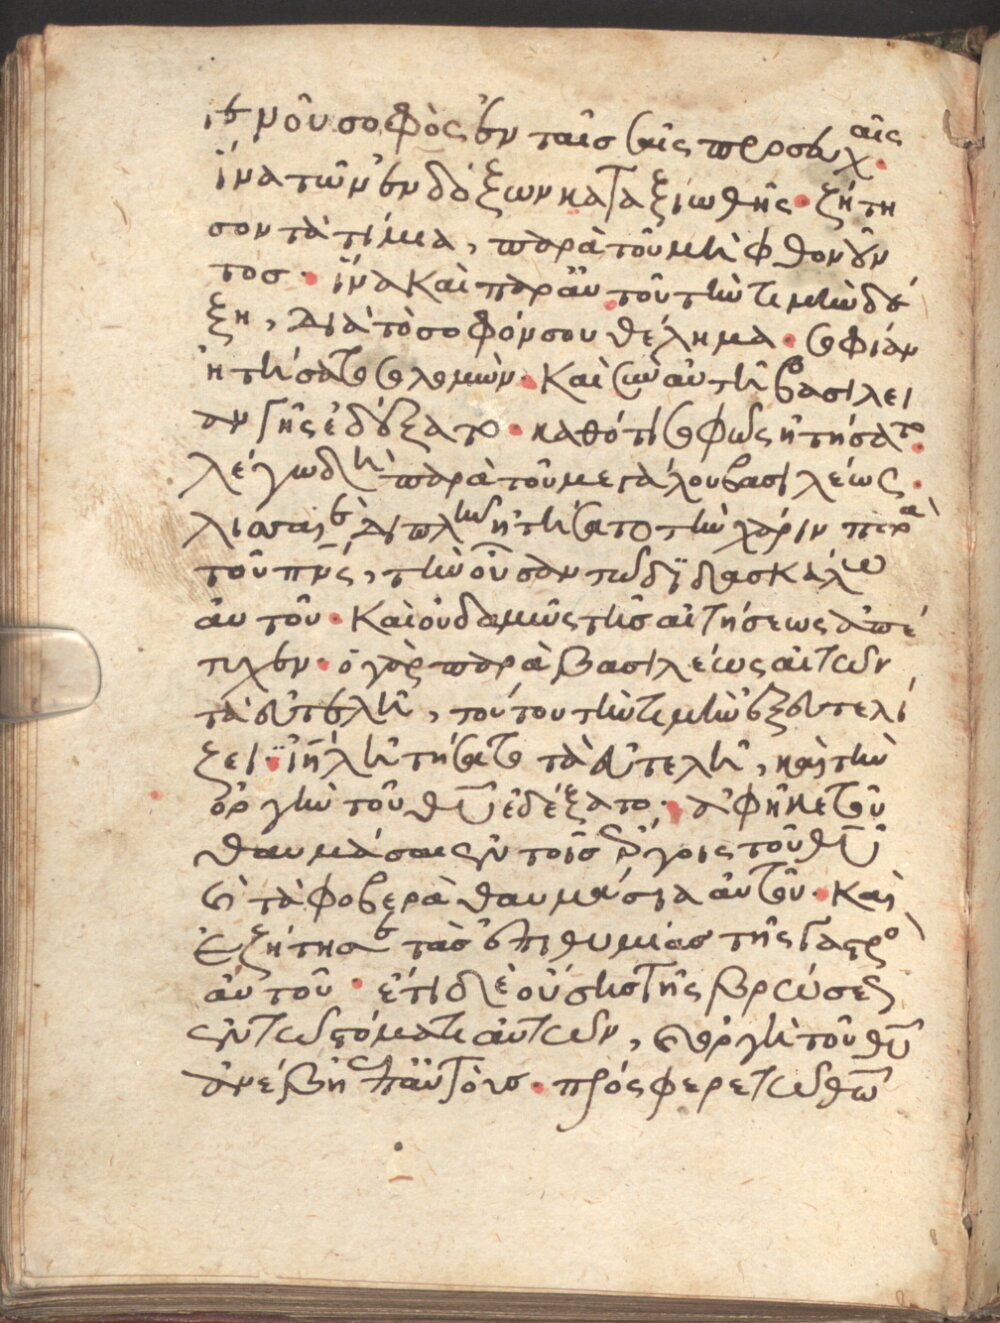 γενοῦ σοφὸς ἐν ταῖς σαῖς προσευχαῖς·
ἵνα τῶν ἐνδόξων καταξιωθῆς· ζήτη
σον τὰ τίμια, παρὰ τοῦ μὴ φθονοῦν
τος· ἵνα καὶ παρ' αὐτοῦ τὴν τιμὴν δέ
ξη, διὰ τὸ σοφόν σου θέλημα· σοφίαν
ἠτήσατο σολομὼν· καὶ σὺν αὐτῆ βασιλεί
αν γῆς ἐδέξατο· καθότι σοφῶς ἠτήσατο·
λέγω δὴ παρὰ τοῦ μεγάλου βασιλέως·
ἐλισσαῖε διπλὴν ἠτήσατο τὴν χάριν παρὰ
τοῦ πνς, τὴν οὖσαν τῶ διδασκάλω
αὐτοῦ· καὶ οὐδαμῶς τῆς αἰτήσεως ἀπέ
τυχεν· ὁ γὰρ παρὰ βασιλέως αἰτῶν
τὰ εὐτελῆ, τούτου τὴν τιμὴν ἐξευτελί
ζει· ἰηλ ἠτήσατο τὰ εὐτελῆ, καὶ τὴν
ὀργὴν τοῦ θυ ἐδέξατο· ἀφῆκε τοῦ
θαυμάσαι ἐν τοῖς ἔργοις τοῦ θυ
τὰ φοβερὰ θαυμάσια αὐτοῦ· καὶ
ἐξήτησε τὰς ἐπιθυμίας τῆς γαστρὸς
αὐτοῦ· ἔτι δὲ οὔσης τῆς βρώσεως
ἐν τῶ στόματι αὐτῶν, ὀργὴ τοῦ θυ
ἀνέβη ἐπ' αὐτοῖς· πρόσφερε τῶ θω